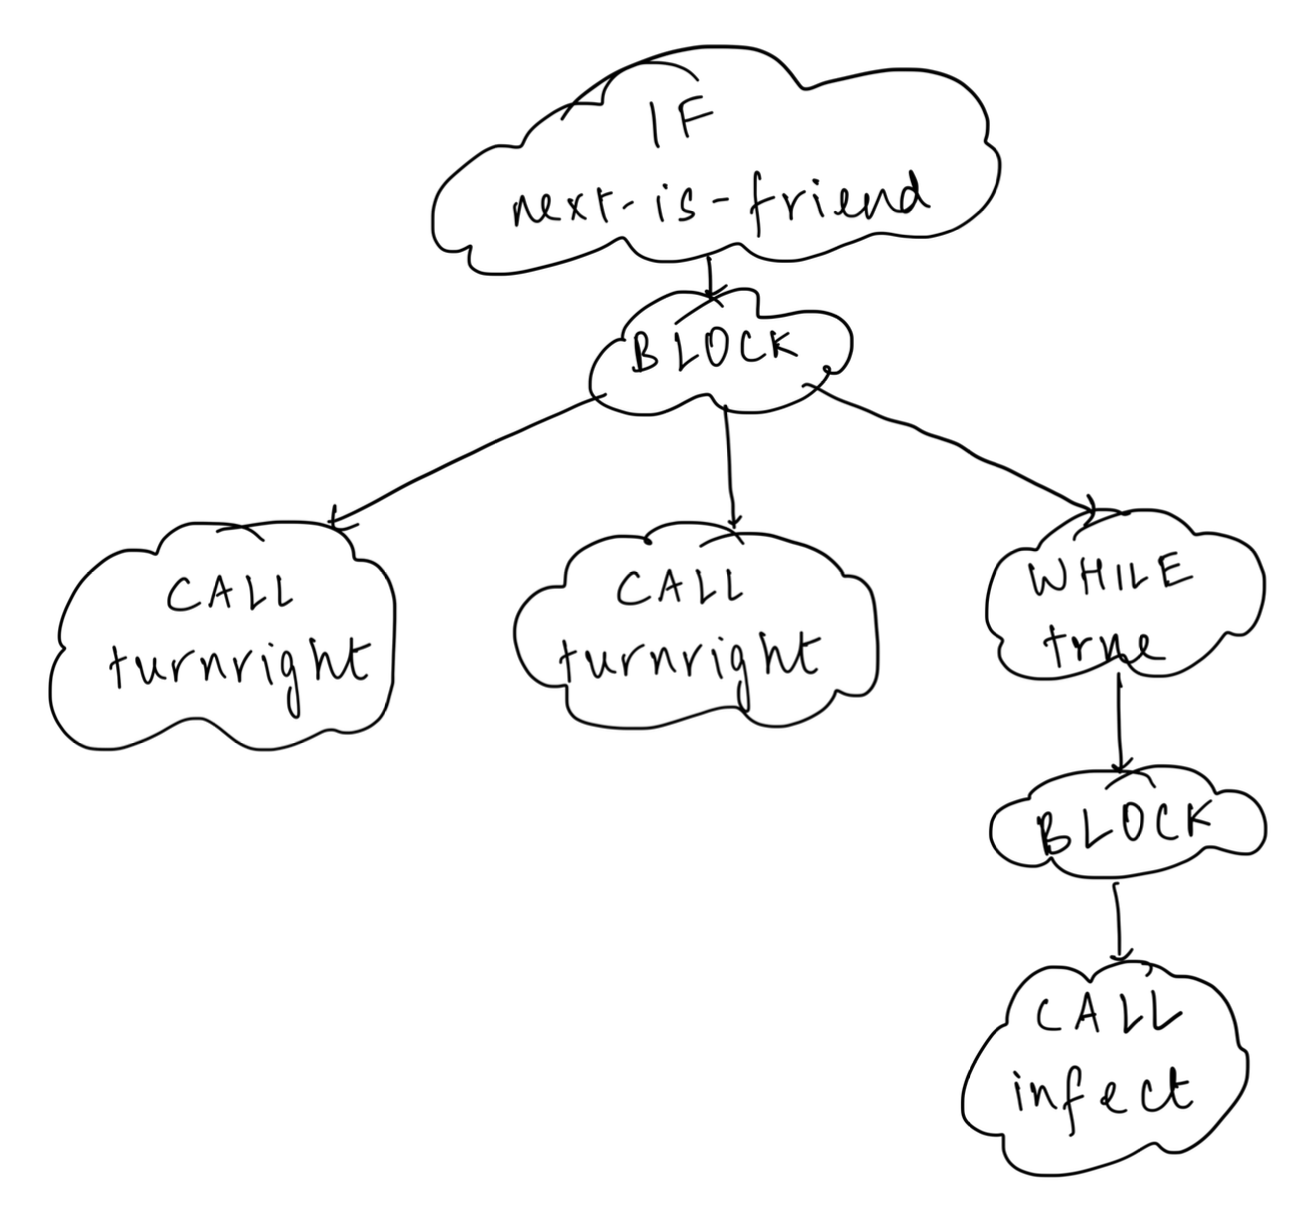 IF
next-is-friend
BLOCK
CALL
turnright
CALL
turnright
WHILE
true
BLOCK
CALL
infect